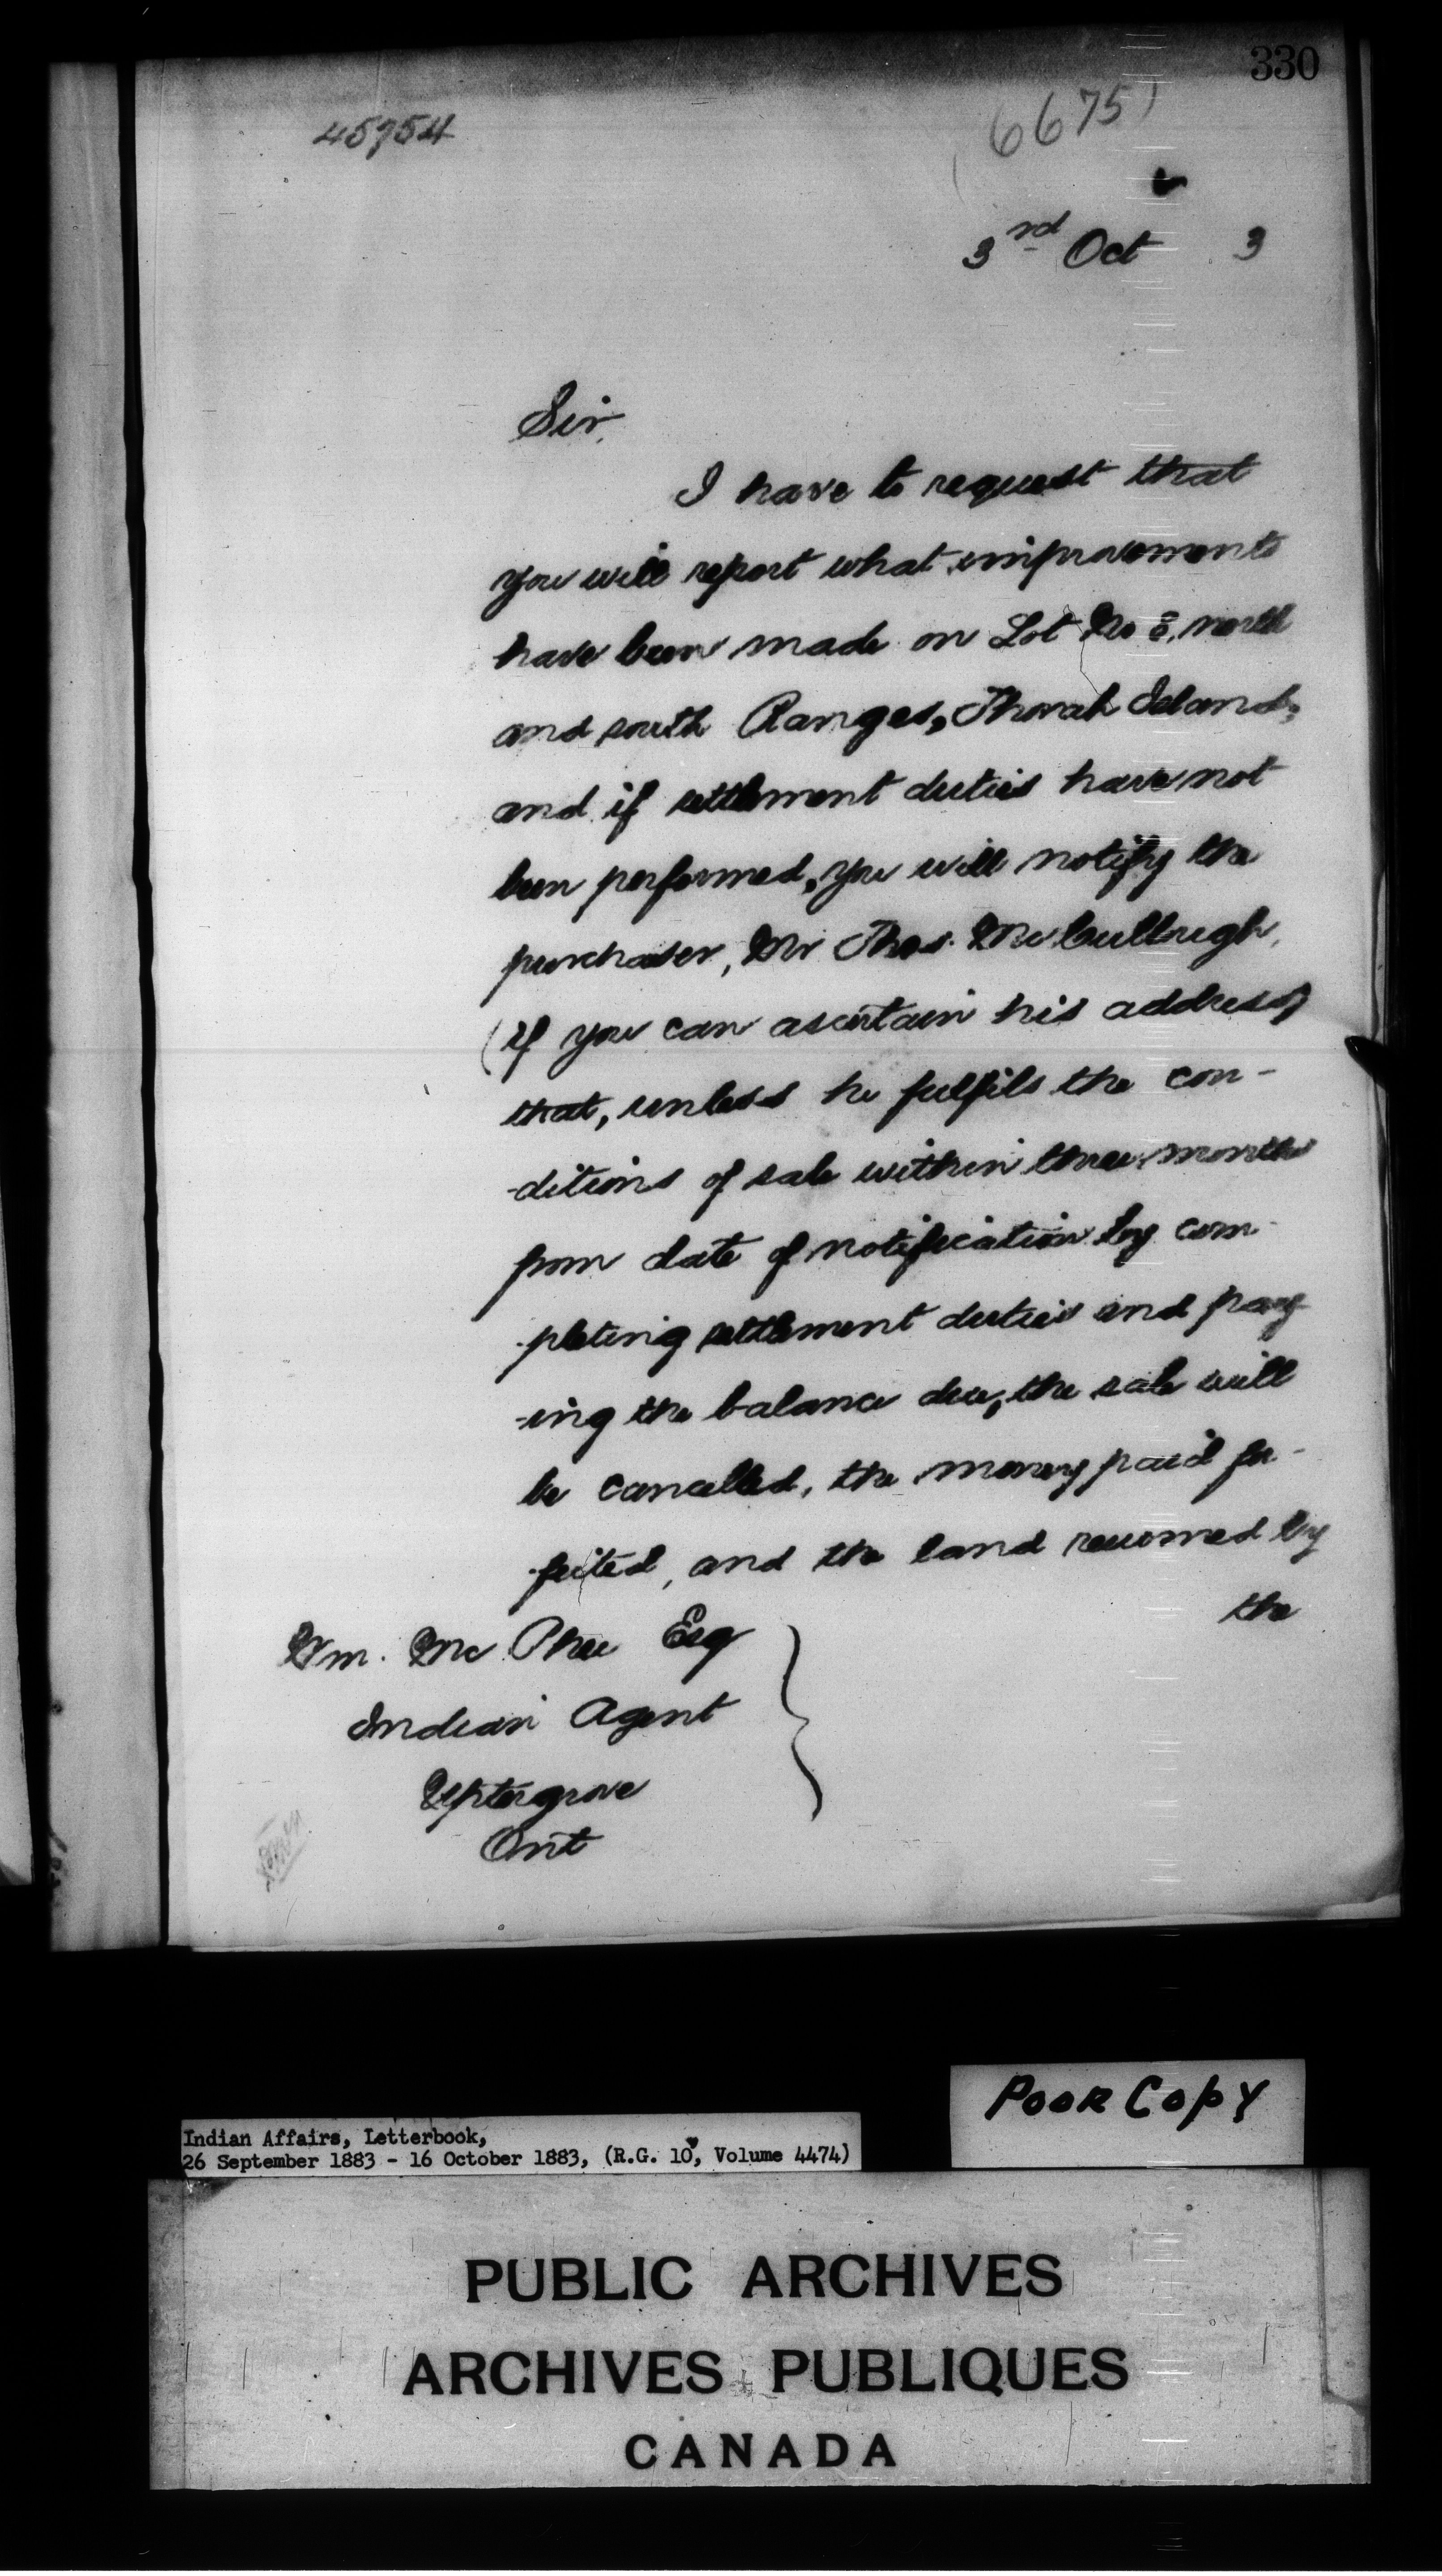 330
45754
6675
3rd Oct 3
Sir,
I have to request that
you will report what improvements
have been made on Lot No 8, north
and south Ranges, Thorah Island,
and if settlement duties have not
been performed, you will notify the
purchaser, Mr Thos. McCullough,
(if you can ascertain his address)
that, unless he fulfils the con-
-ditions of sale within three months
from date of notification by com-
-pleting settlement duties and pay
-ing the balance due, the sale will
be cancelled, the money paid for-
-feited, and the land resumed by
the
Wm. McPhee Esq
Indian Agent
Uptergrove
Ont
Poor Copy
Indian Affairs, Letterbook,
26 September 1883 - 16 October 1883, (R.G. 10, Volume 4474)
PUBLIC ARCHIVES
ARCHIVES PUBLIQUES
CANADA